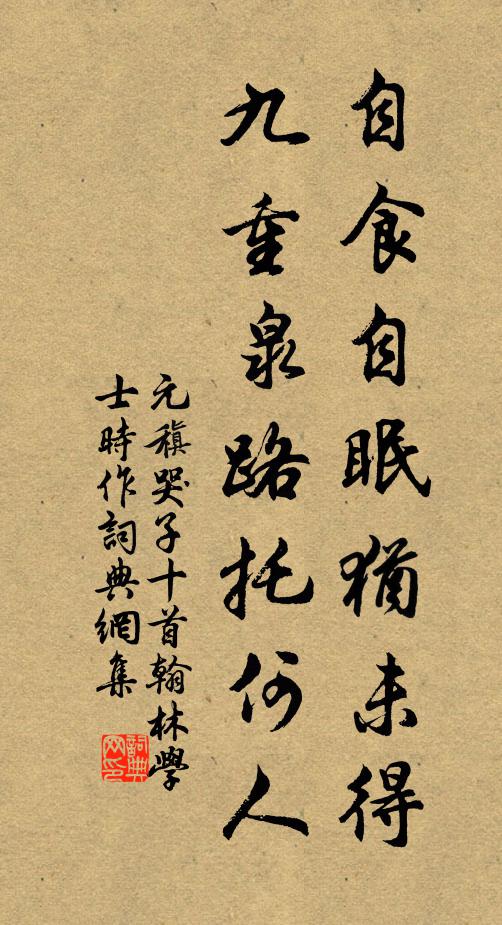 自食自眠猶未得
九重泉路托何人
元稹哭子十首翰林學
士時作詞典網集
詞典
网印